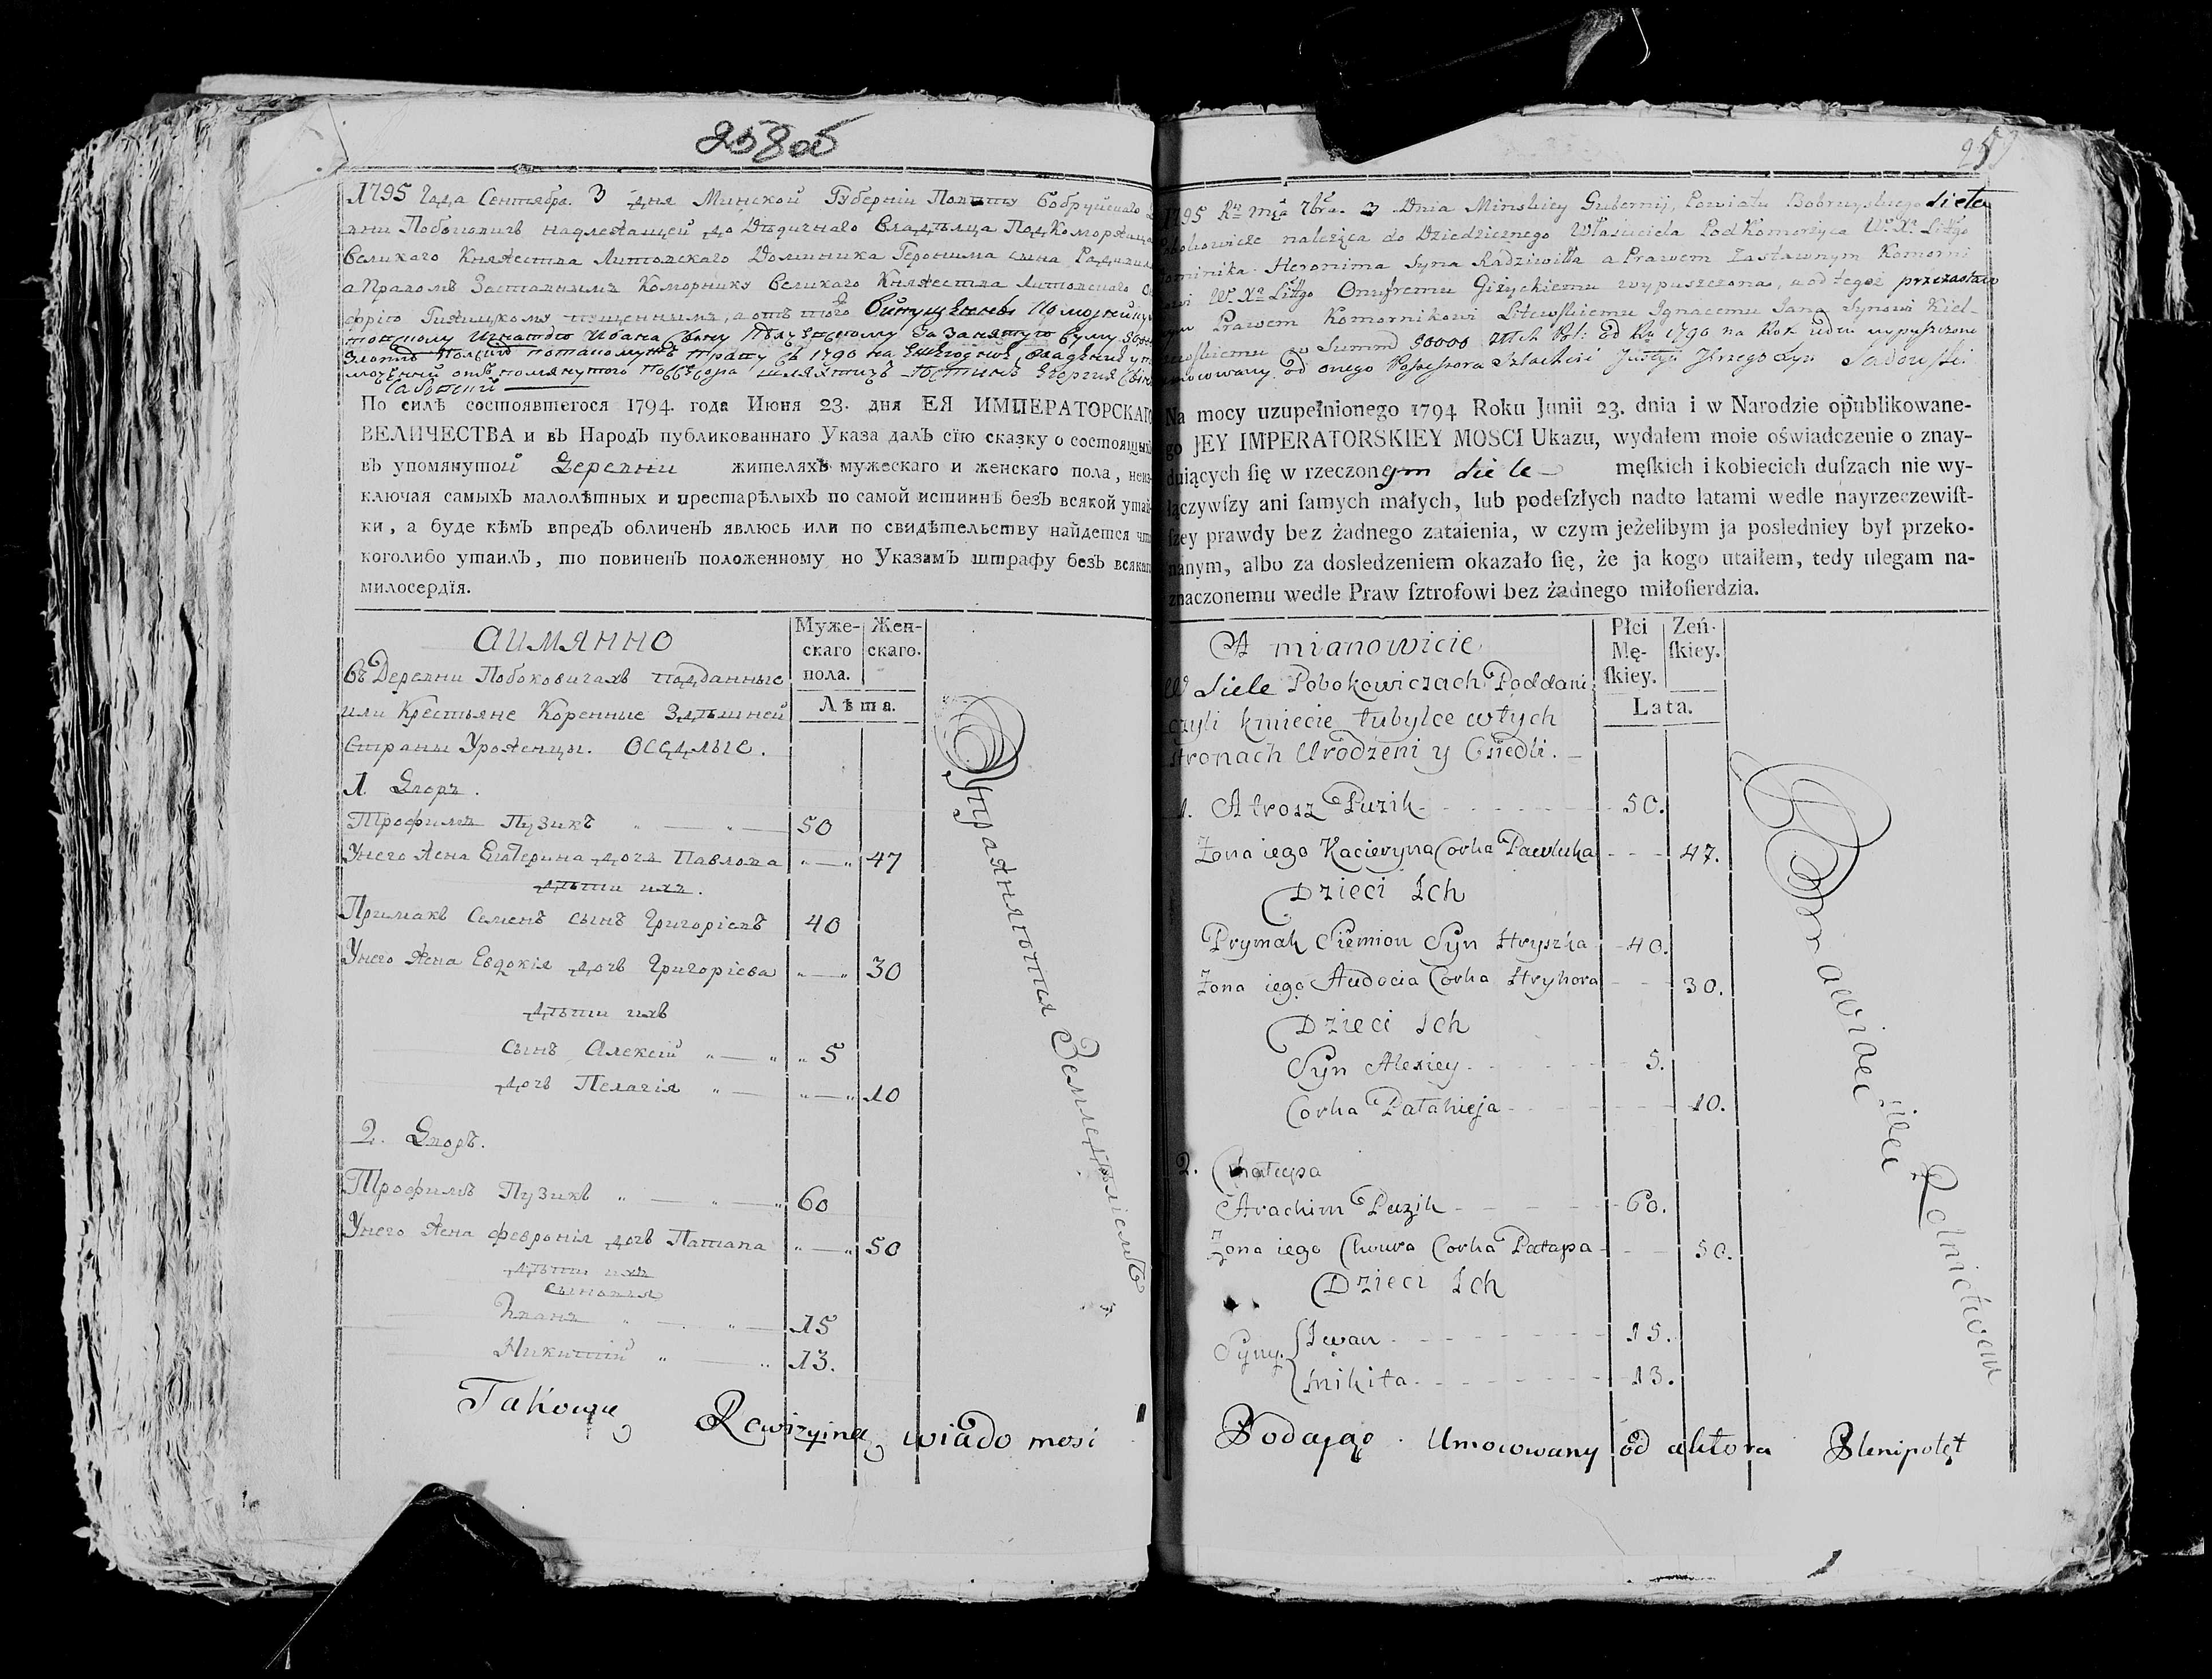 258об
1795 Года Сентября. 3 дня Минской Губерніи Повѣту Бобруйскаго
вни Побоковичъ надлежащей до Дѣдичнаго Владѣльца ПодКоморжаца
Великаго Княжества Литовскаго Доминика Геронима сына Радзивил
а Правомъ Заставнымъ Коморнику Великаго Княжества Литовскаго
фрію Гижицкому пущеннымъ, а отъ того
1790 на
отъ помянутого шляхтичъ Георгія
Садовскій
По силѣ состоявшегося 1794. года Июня 23. дня ЕЯ ИМПЕРАТОРСКАГО
ВЕЛИЧЕСТВА и въ Народъ публикованнаго Указа далъ сїю сказку о состоящихъ
въ упомянутой Деревни жителяхъ мужескаго и женскаго пола, неиз-
ключая самыхъ малолѣтныхъ и престарѣлыхъ по самой истиннѣ безъ всякой утай-
ки, а буде кѣмъ впредъ обличенъ явлюсь или по свидѣтельству найдется что
коголибо утаилъ, то повиненъ положенному по Указамъ штрафу безъ всякаго
милосердїя.
аимянно
Муже-
скаго
пола.
Жен-
скаго.
Лѣта.
въ Деревни Побоковичахъ подданные
или Крестьяне Коренные Здѣшней
Страны Уроженцы. Осѣдлые.
1. Дворъ.
Трофимъ Пузикъ 50
Унего Жена Екатерина дочь Павлова 47
дѣти ихъ.
Примакъ Семенъ сынъ Григоріевъ 40
Унего Жена Евдокія дочь Григоріева 30
дѣти ихъ
сынъ Алексѣй 5
дочь Пелагія 10
2. Дворъ.
Трофимъ Пузикъ 60
Унего Жена Февронія дочь Патапа 50
дѣти ихъ
сыновья
Иванъ 15
Никитій 13.
Упражняются Земледѣліемъ
Takowę Rewizyiną wiadomosi
259
1795 Rku Mca 7bra. 3 Dnia Minskiey Gubernij, Powiatu Bobruyskiego Sieło
obokowicze należąca do Dziedzicznego Własciciela PodKomorzyca Wo Xa Littgo
ominika Heronima Syna Radziwiłła a Prawem Zastawnym Komorni
kowi Wo Xa Littgo Onufremu Giżyckiemu wypuszczona, a od tegoż przezastaw
nym Prawem Komornikowi Litewskiemu Ignacemu Jana Synowi Kieł-
czewskiemu w Summie 90000 Złłch Pol: od Rku 1790 na Rok ieden wypuszczone
umocowany od onego Possesora Szlachcic Justyn Jerzego Syn Sadowski
Na mocy uzupełnionego 1794 Roku Junii 23. dnia i w Narodzie opublikowane-
go JEY IMPERATORSKIEY MOSCI Ukazu, wydałem moie oświadczenie o znay-
duiących ſię w rzeczonym Siele męſkich i kobiecich duſzach nie wy-
łączywſzy ani ſamych małych, lub podeſzłych nadto latami wedle nayrzeczewiſt-
ſzey prawdy bez żadnego zataienia, w czym jeżelibym ja posledniey był przeko-
nanym, albo za dosledzeniem okazało ſię, że ja kogo utaiłem, tedy ulegam na-
znaczonemu wedle Praw ſztrofowi bez żadnego miłoſierdzia.
A mianowicie
Płci
Mę-
ſkiey.
Zeń-
ſkiey.
Lata.
W Siele Pobokowiczach Poddani
czyli kmiecie tubylce wtych
stronach Urodzeni y Osiedli.
1. Atrosz Puzik 50.
Żona iego Kacieryna Corka Pawluka 47.
Dzieci Ich
Prymak Siemion Syn Hryszka 40.
Żona iego Audocia Corka Hryhora 30.
Dzieci Ich
Syn Alexiey 5.
Corka Patahieja 10.
2. Chałupa
Atrachim Puzik 60.
Żona iego Chwora Corka Patapa 50.
Dzieci Ich
Syny. Iwan 15.
Mikita 13.
Zabawiaią się Rolnictwem
Podaję. Umocowany od aktora Plenipotęt